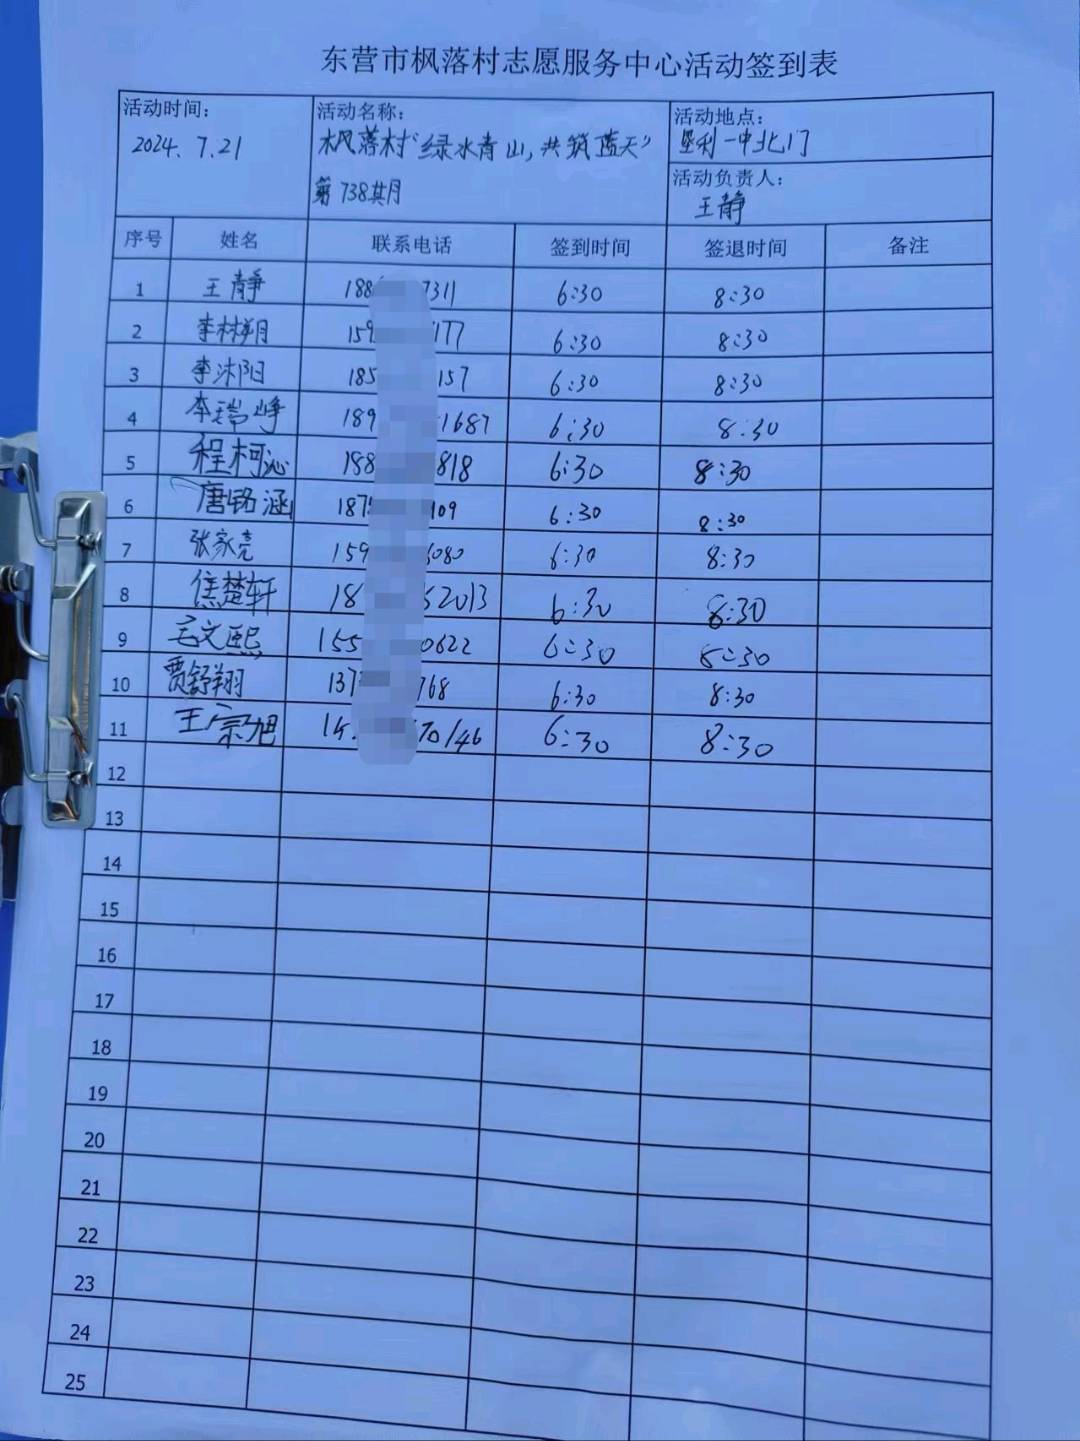 东营市枫落村志愿服务中心活动签到表
活动时间： 活动名称： 活动地点：
2024.7.21 枫落村“绿水青山,共筑蓝天” 垦利一中北门
第738期 活动负责人：
王静
序号 姓名 联系电话 签到时间 签退时间 备注
1 王静 188 7311 6:30 8:30
2 李树朔 159 177 6:30 8:30
3 李沐阳 185 157 6:30 8:30
4 李瑞峥 189 1687 6:30 8:30
5 程柯沁 188 818 6:30 8:30
6 唐铭涵 187 109 6:30 8:30
7 张家亮 159 6080 6:30 8:30
8 焦楚轩 18 52013 6:30 8:30
9 文熙 155 0622 6:30 8:30
10 贾舒翔 137 768 6:30 8:30
11 王宗旭 15 70146 6:30 8:30
12
13
14
15
16
17
18
19
20
21
22
23
24
25